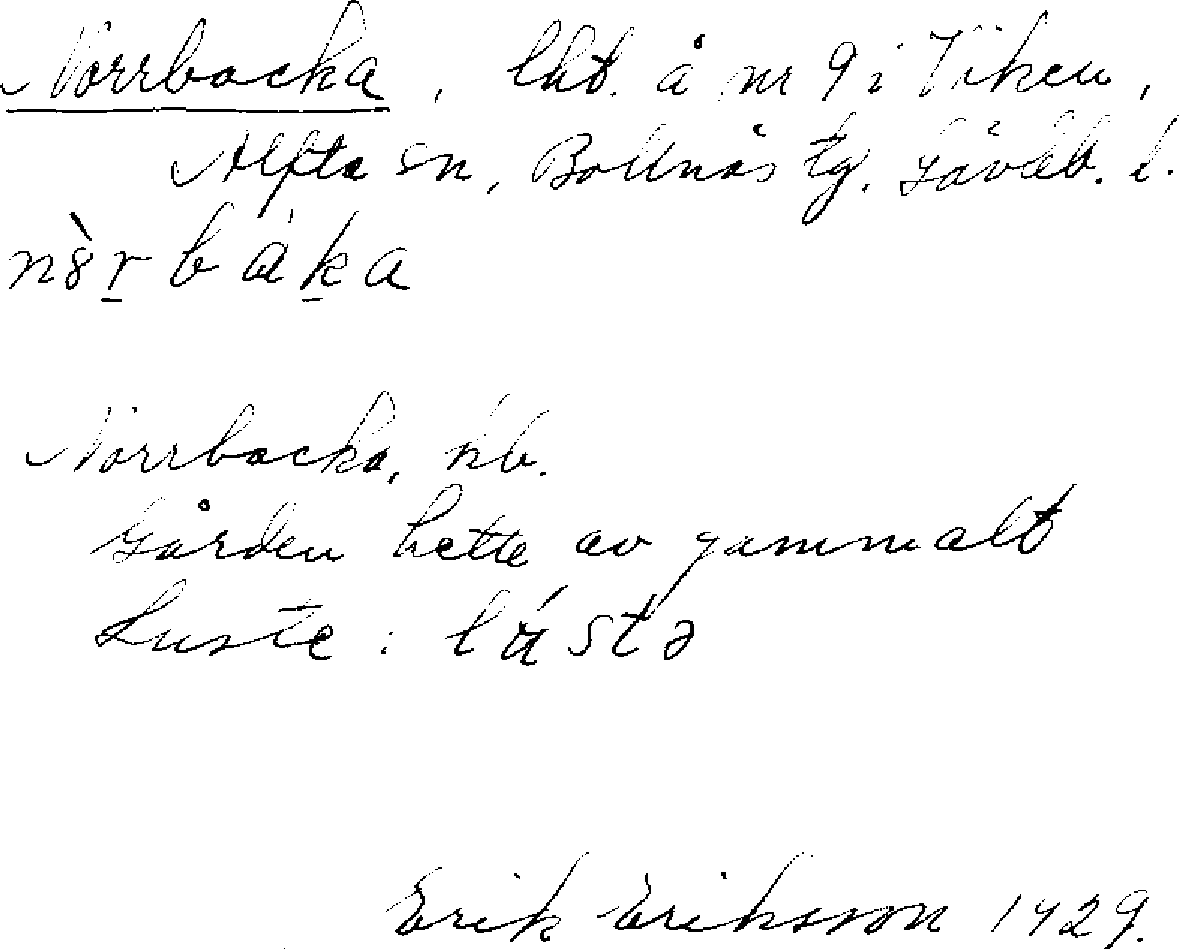 Norrbacka, lht. å nr 9 i Viken,
Alfta sn, Bollnäs tg. Gävleb. l.
nòrbáka
Norrbacka, kb.
Gården hette av gammalt
Luste: lústə
Erik Eriksson 1929.